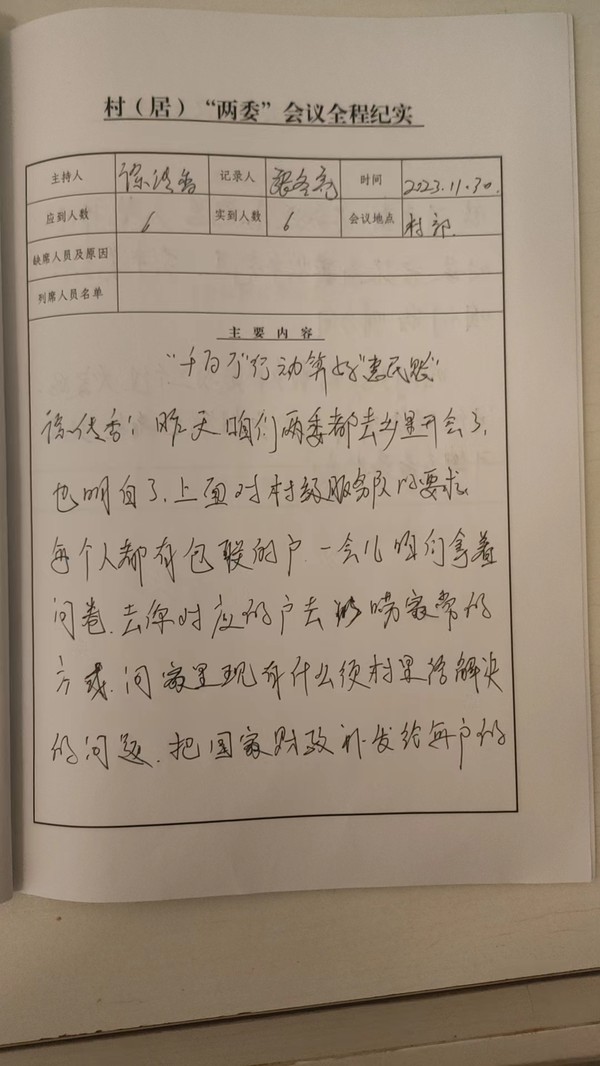 村（居）“两委”会议全程纪实
主持人 徐传香 记录人 时间 2023.11.30.
应到人数 6 实到人数 6 会议地点 村部.
缺席人员及原因
列席人员名单
主要内容
“千百万”行动算好“惠民账”
徐传香：昨天咱们两委都去乡里开会了,
也明白了.上面对村级服务队的要求.
每个人都有包联的户.一会儿咱们拿着
问卷.去你对应的户去以唠家常的
方式.问家里现有什么须村里给解决
的问题.把国家财政补发给每户的